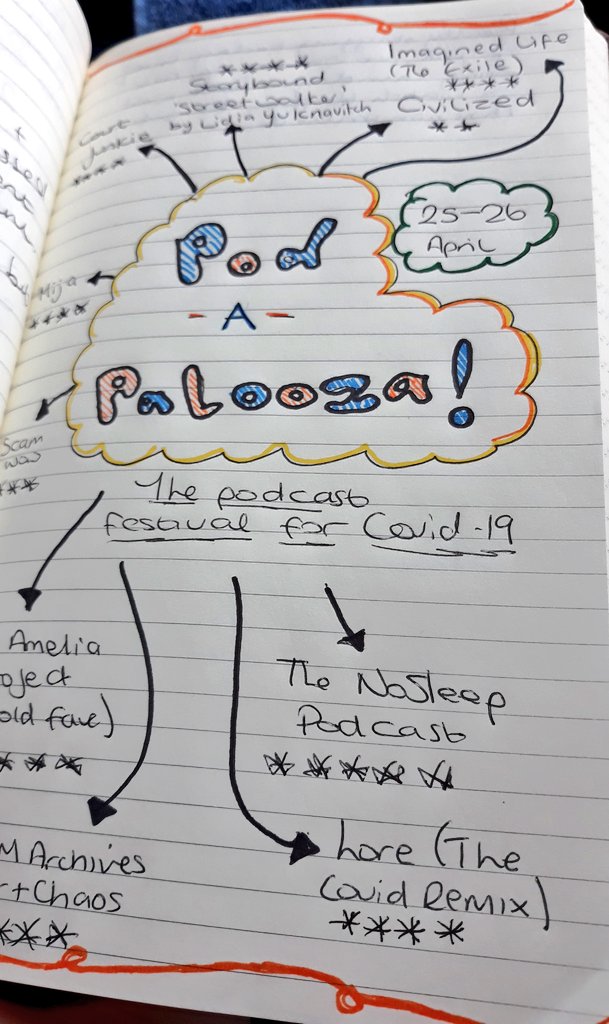 Imagined Life
(The Exile)
****
Civilized
**
****
Storybound,
'Streetwalker'
by Lidia Yuknavitch
Court
Junkie
****
25-26
April
Pod
- A -
Palooza!
Mija
****
Scam
***
The podcast
festival for Covid-19
Amelia
oject
old fave)
***
The NoSleep
Podcast
*****
M Archives
+Chaos
***
Lore (The
Covid Remix)
****